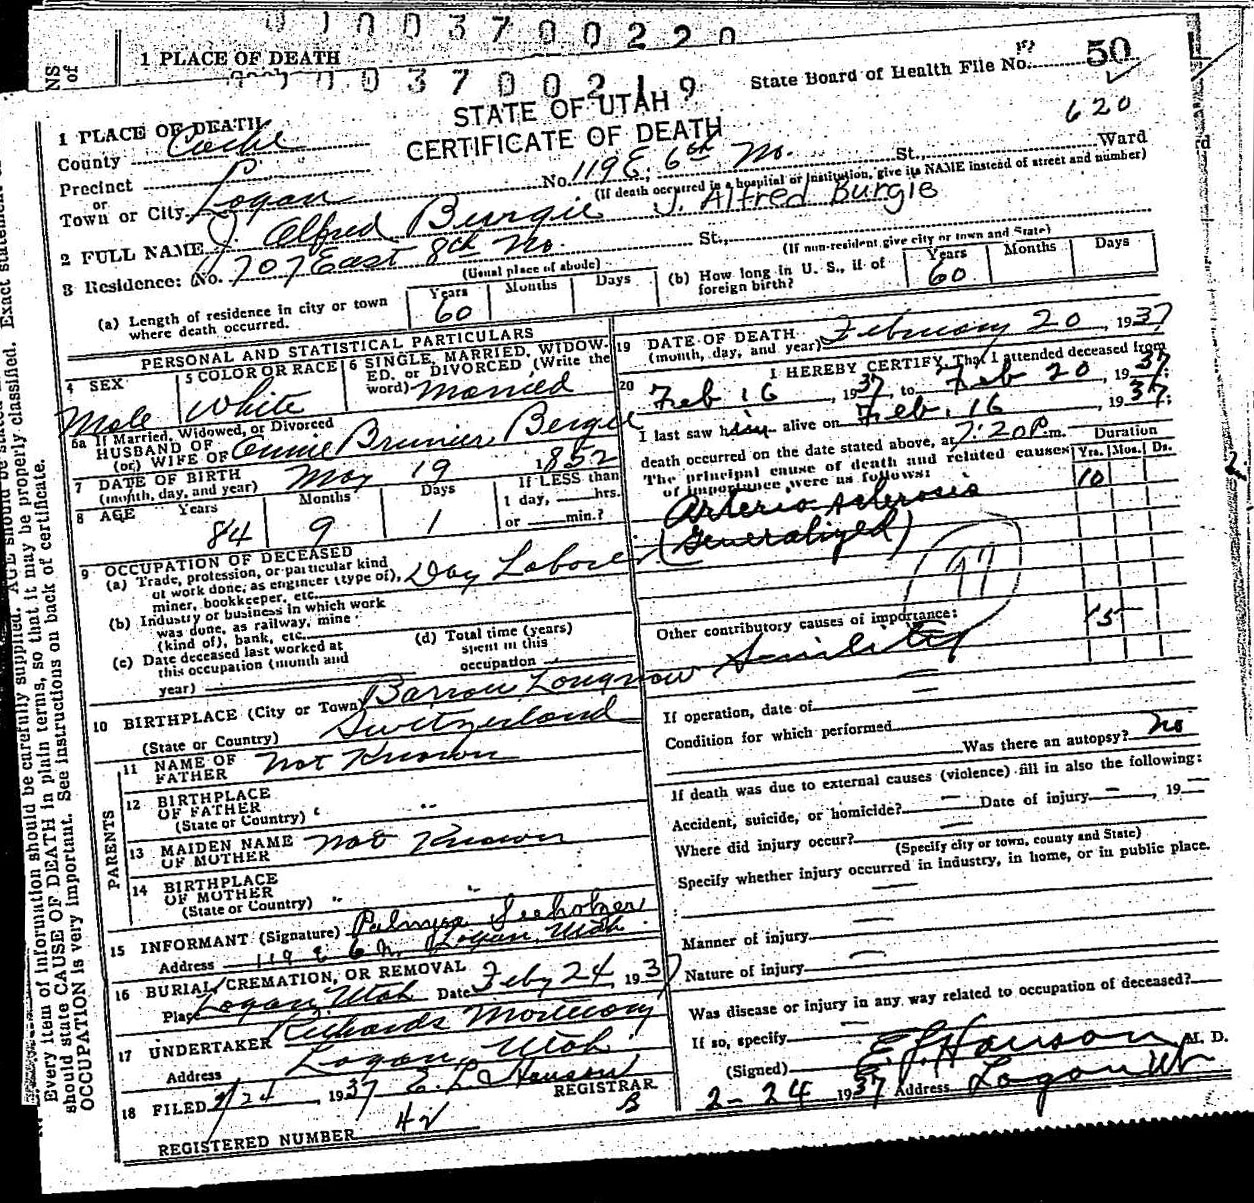 0 0 0 3 7 0 0 2 2 0
1 PLACE OF DEATH
0 0 0 3 7 0 0 2 1 9
State Board of Health File No. 50
620
STATE OF UTAH
CERTIFICATE OF DEATH
1 PLACE OF DEATH
County Cache
Precinct
or
Town or City Logan No. 119 E. 6th No. St. Ward
(If death occurred in a hospital or institution, give its NAME instead of street and number)
2 FULL NAME J. Alfred Burgie J. Alfred Burgie
3 Residence: No. 707 East 8th No. St.,
(Usual place of abode) (If non-resident give city or town and State)
(a) Length of residence in city or town where death occurred. Years 60 Months Days
(b) How long in U. S., if of foreign birth? Years 60 Months Days
PERSONAL AND STATISTICAL PARTICULARS
4 SEX Male
5 COLOR OR RACE White
6 SINGLE, MARRIED, WIDOWED, or DIVORCED (Write the word) Married
6a If Married, Widowed, or Divorced
HUSBAND OF
(or) WIFE OF Annie Brunier Bergie
7 DATE OF BIRTH
(month, day, and year) May 19 1852
8 AGE Years 84 Months 9 Days 1 If LESS than 1 day, hrs. or min.?
9 OCCUPATION OF DECEASED
(a) Trade, profession, or particular kind of work done, as engineer (type of), miner, bookkeeper, etc. Day Laborer
(b) Industry or business in which work was done, as railway, mine (kind of), bank, etc.
(c) Date deceased last worked at this occupation (month and year)
(d) Total time (years) spent in this occupation
10 BIRTHPLACE (City or Town)
(State or Country) Switzerland
PARENTS
11 NAME OF FATHER Not Known
12 BIRTHPLACE OF FATHER (State or Country) " "
13 MAIDEN NAME OF MOTHER Not Known
14 BIRTHPLACE OF MOTHER (State or Country) " "
15 INFORMANT (Signature) Palmyra Seeholzer
Address 119 E 6 N. Logan, Utah
16 BURIAL, CREMATION, OR REMOVAL
Place Logan, Utah Date Feby 24, 1937
17 UNDERTAKER Richards Mortuary
Address Logan, Utah
18 FILED 2/24, 1937 E. L. Hanson
REGISTRAR
B
REGISTERED NUMBER 42
19 DATE OF DEATH
(month, day, and year) February 20, 1937
20 I HEREBY CERTIFY, That I attended deceased from
Feb 16, 1937, to Feb 20, 1937;
I last saw him alive on Feb. 16, 1937;
death occurred on the date stated above, at 7:20 P.m.
The principal cause of death and related causes of importance were as follows:
Duration
Yrs. Mos. Ds.
Arterio sclerosis 10
(Generalized)
97
Other contributory causes of importance:
Senility 15
If operation, date of
Condition for which performed
Was there an autopsy? No
If death was due to external causes (violence) fill in also the following:
Accident, suicide, or homicide? Date of injury , 19
Where did injury occur?
(Specify city or town, county and State)
Specify whether injury occurred in industry, in home, or in public place.
Manner of injury
Nature of injury
Was disease or injury in any way related to occupation of deceased?
If so, specify
(Signed) E L Hanson M. D.
2-24 1937 Address Logan Ut
Every item of information should be carefully supplied. AGE should be stated
should state CAUSE OF DEATH in plain terms, so that it may be properly classified. Exact statement of
OCCUPATION is very important. See instructions on back of certificate.